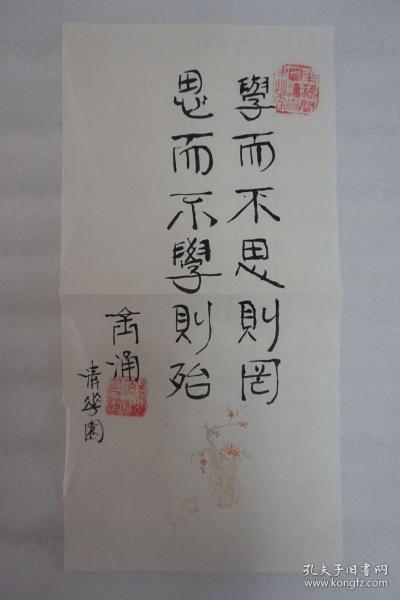 學而不思則罔
思而不學則殆
金涌
清華園
孔夫子旧书网
www.kongfz.com